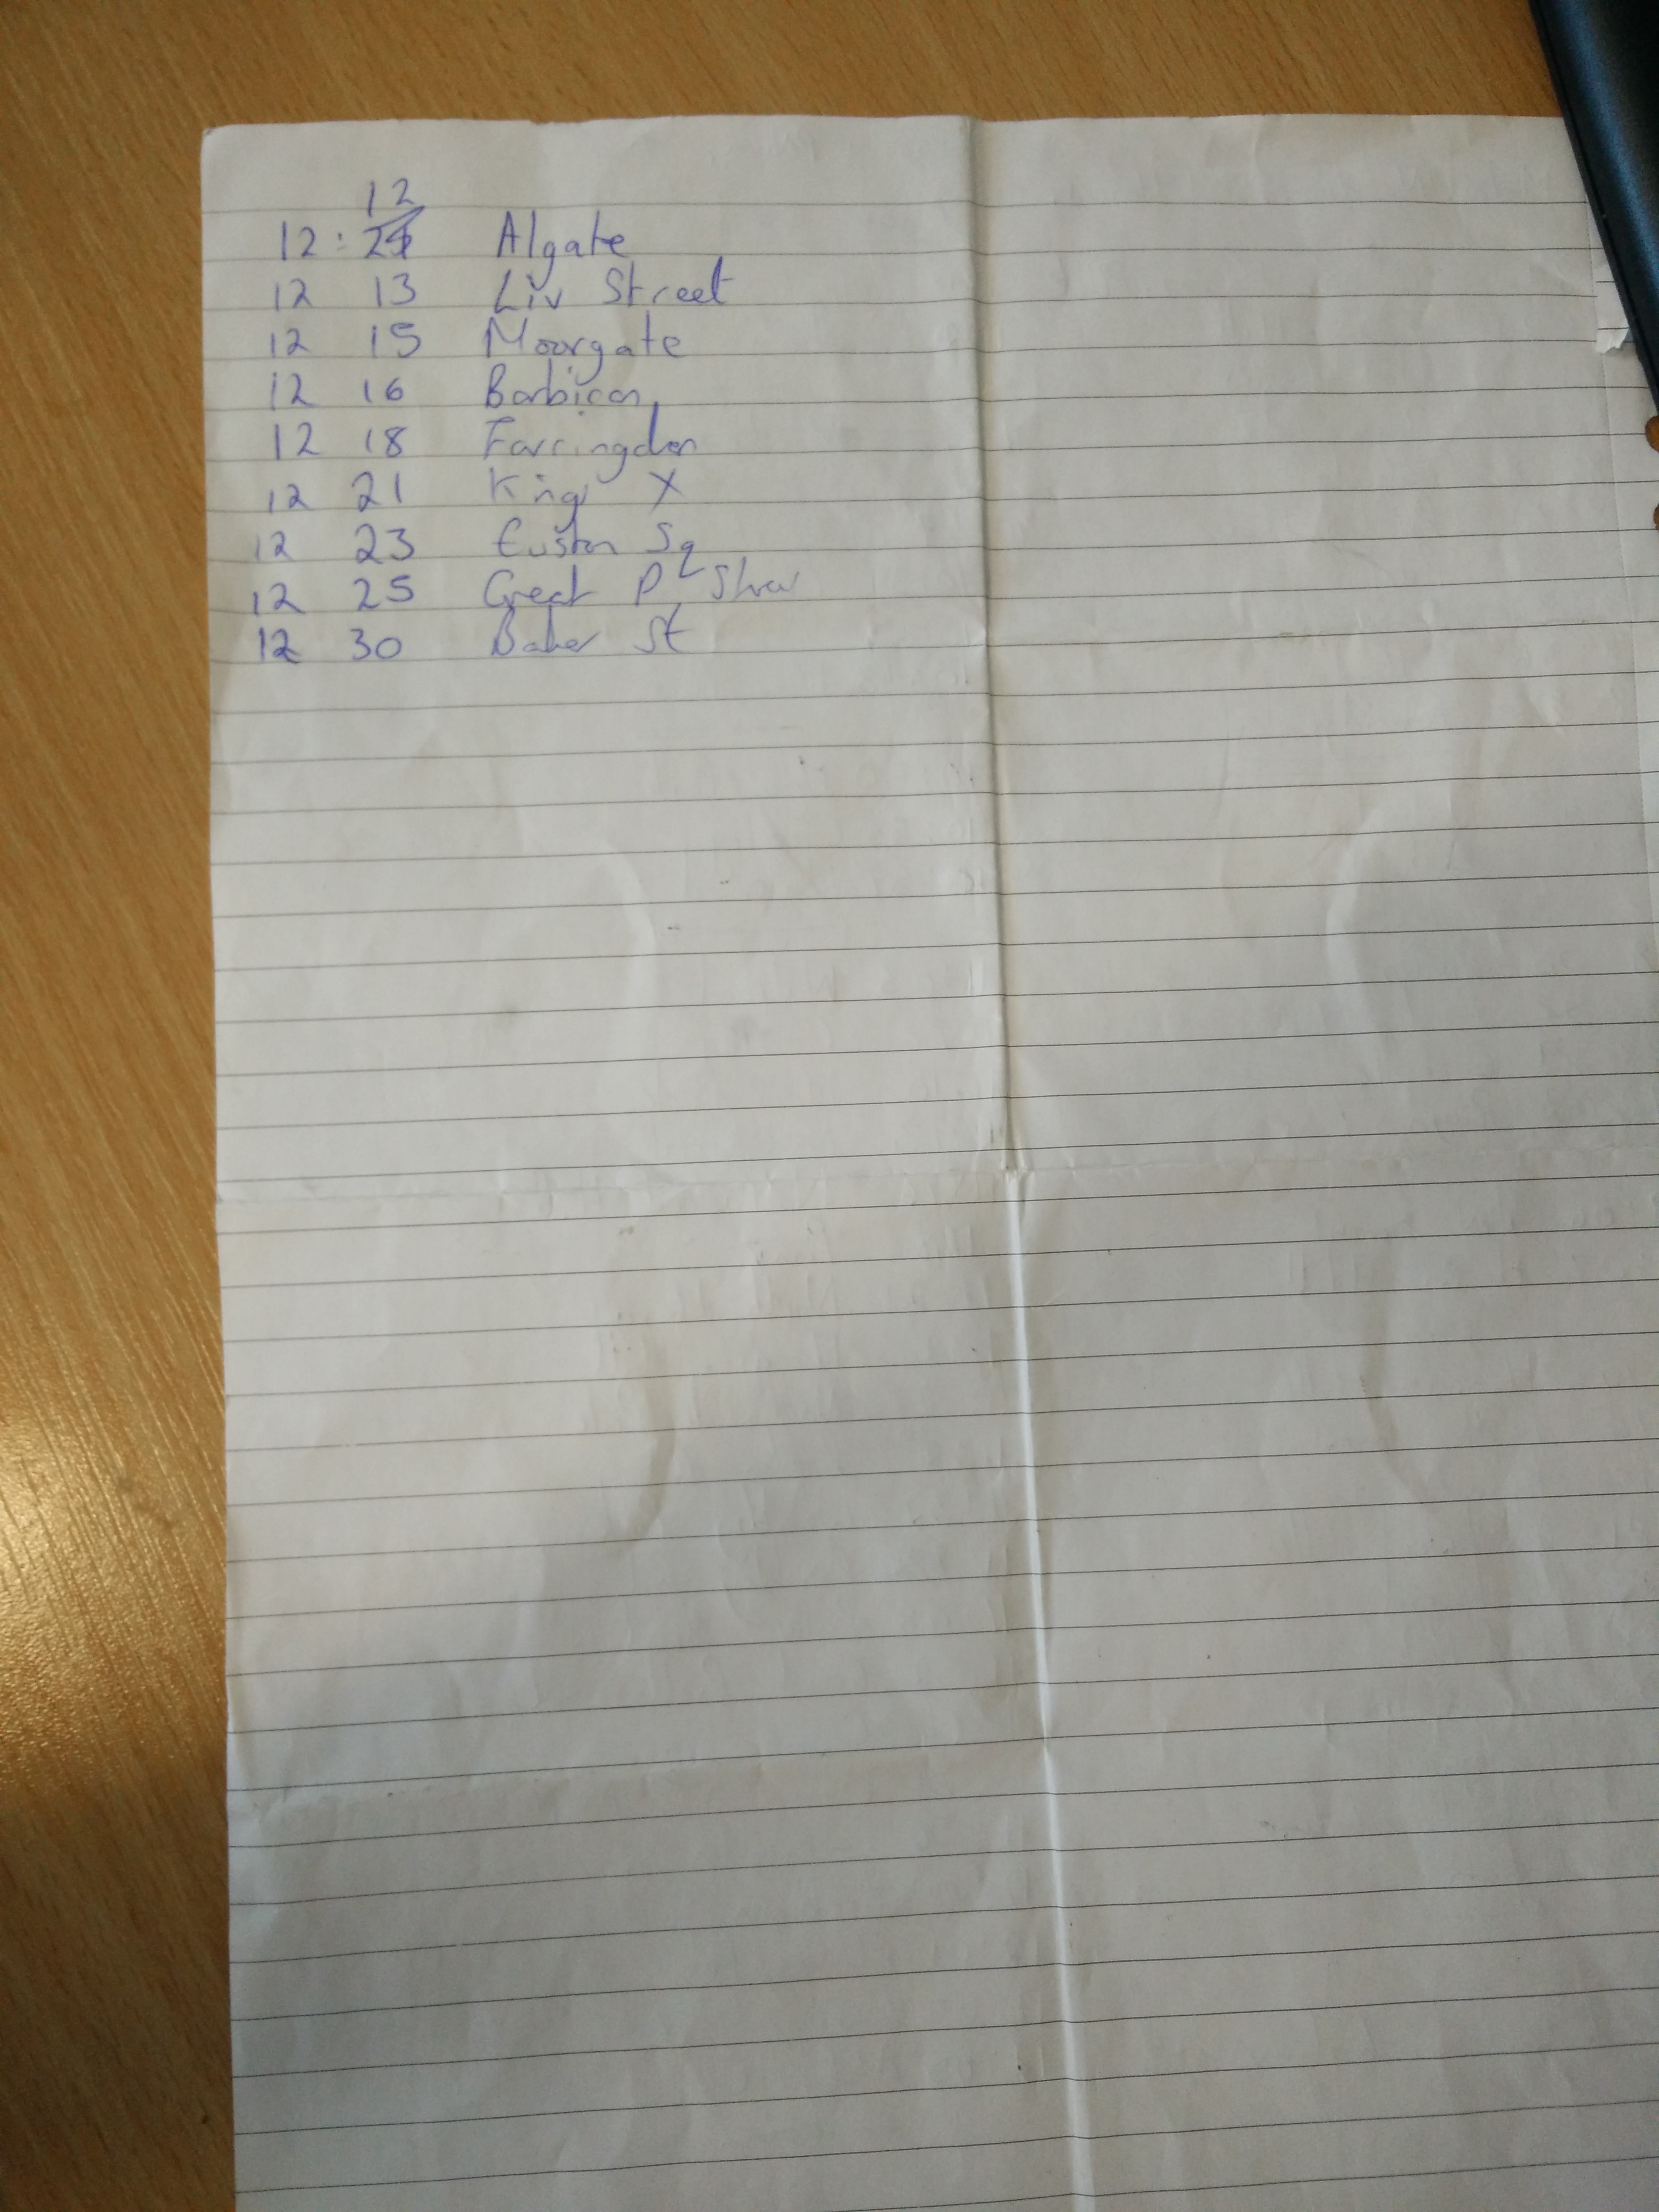 12
12 : 24 Algate
12 13 Liv Street
12 15 Moorgate
12 16 Barbican
12 18 Farringdon
12 21 Kings X
12 23 Euston Sq
12 25 Great P Street
12 30 Baker St